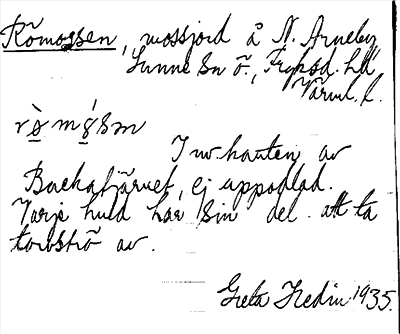 Römossen, mossjord å N. Arneby,
Sunne sn ö., Fryksd. hd
Värml. l.
rø̀mǿsm
I nv. kanten av
Backatjärnet, ej uppodlad.
Varje huld har sin del att ta
torvströ av.
Greta Hedin 1935.